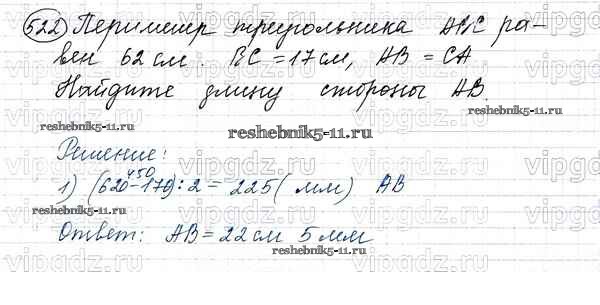 522 Периметр треугольника ABC ра-
вен 62 см. BC = 17 см, AB = CA
Найдите длину стороны AB.
reshebnik5-11.ru
reshebnik5-11.ru
Решение:
450
1) (620-170):2=225(мм) AB
reshebnik5-11.ru
Ответ: AB=22см 5мм
reshebnik5-11.ru
vipgdz.ru